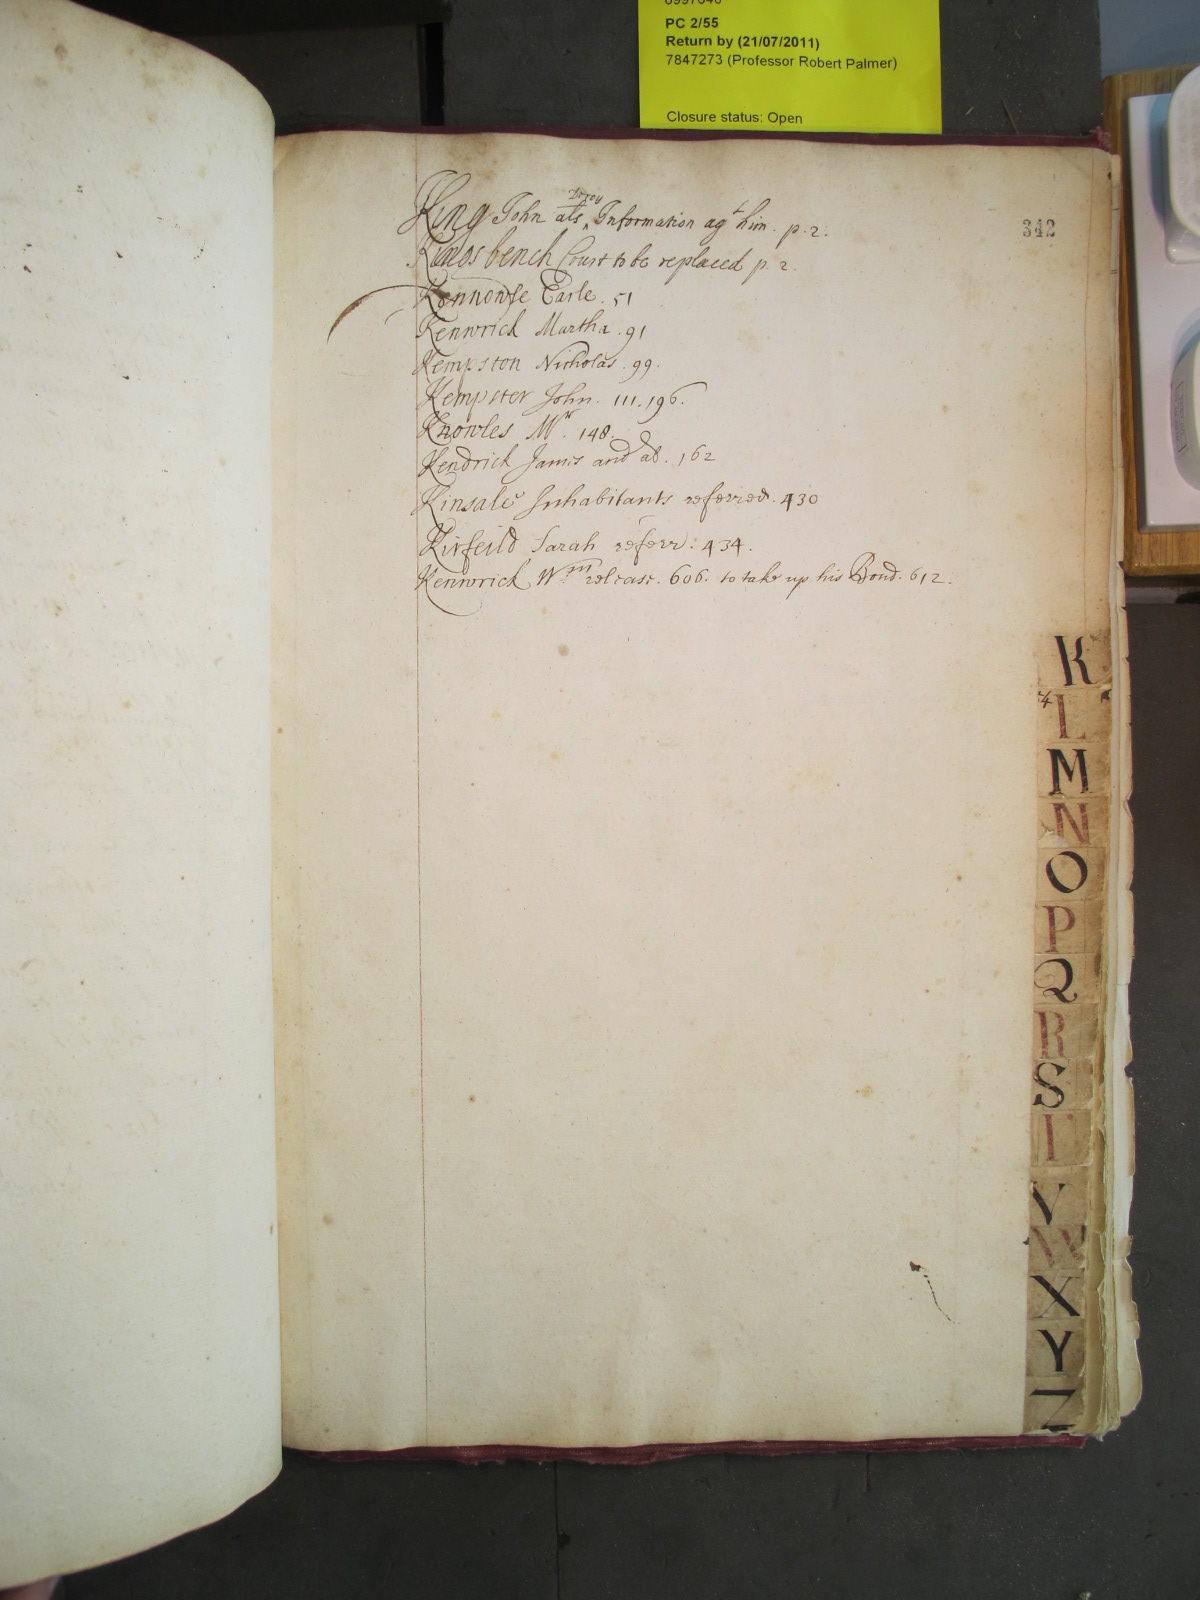 PC 2/55
Return by (21/07/2011)
7847273 (Professor Robert Palmer)
Closure status: Open
342
King John als Information agt him. p. 2.
Kings bench Court to be replaced p. 2.
Kennowle Earle. 51
Kenwrick Martha. 91
Kempston Nicholas. 99.
Kempster John. 111. 196.
Knowles Mr. 148.
Kendrick James and al. 162
Kinsale Inhabitants referred. 430
Kirfeild Sarah referr: 434.
Kenwrick Wm release. 606. to take up his Bond. 612.
K
L
M
N
O
P
Q
R
S
T
V
W
X
Y
Z